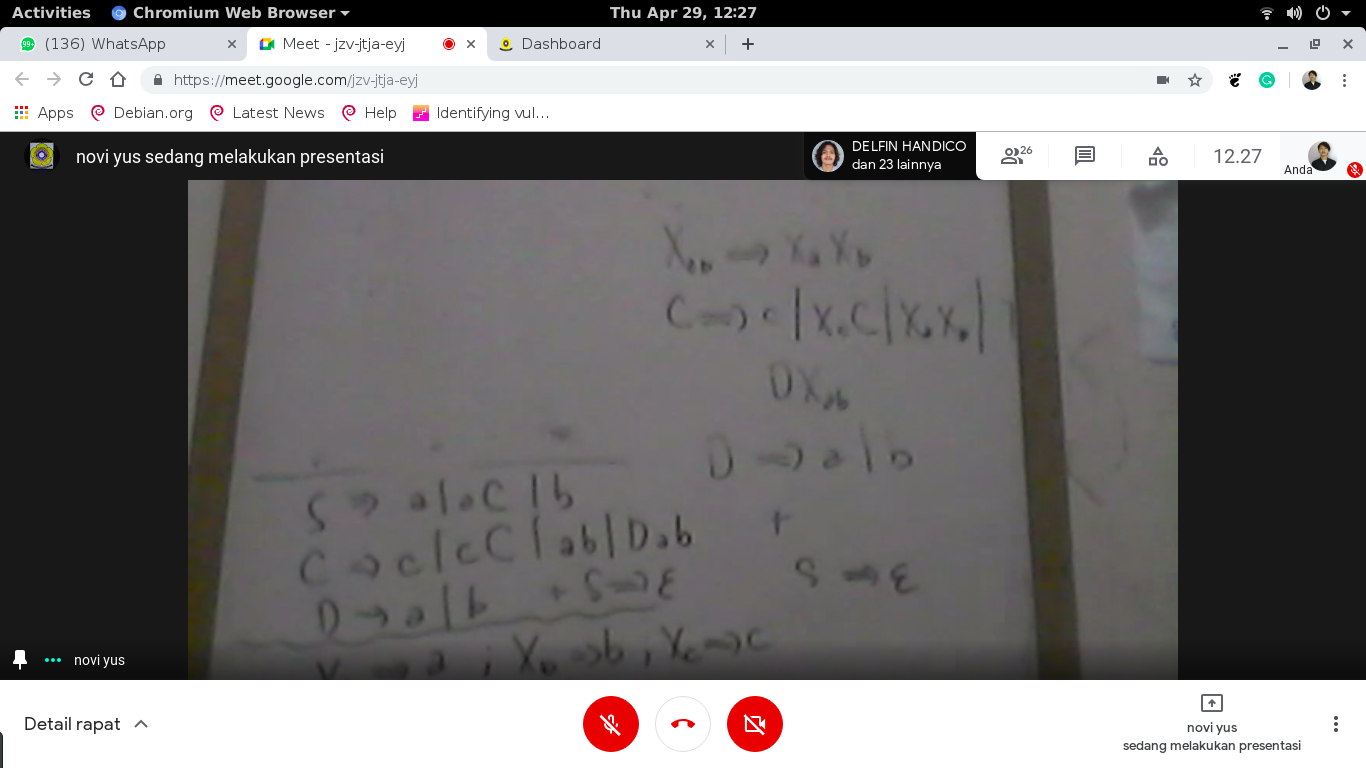 Activities Chromium Web Browser Thu Apr 29, 12:27
(136) WhatsApp Meet - jzv-jtja-eyj Dashboard
https://meet.google.com/jzv-jtja-eyj
Apps Debian.org Latest News Help Identifying vul…
novi yus sedang melakukan presentasi
DELFIN HANDICO
dan 23 lainnya
26
12.27
Anda
X_ab ⇒ X_a X_b
C ⇒ c | X_c C | X_a X_b |
D X_ab
D ⇒ a | b
+
S ⇒ ε
S ⇒ a | aC | b
C ⇒ c | cC | ab | Dab
D → a | b + S ⇒ ε
⇒ a ; X_b ⇒ b ; X_c ⇒ c
novi yus
Detail rapat
novi yus
sedang melakukan presentasi